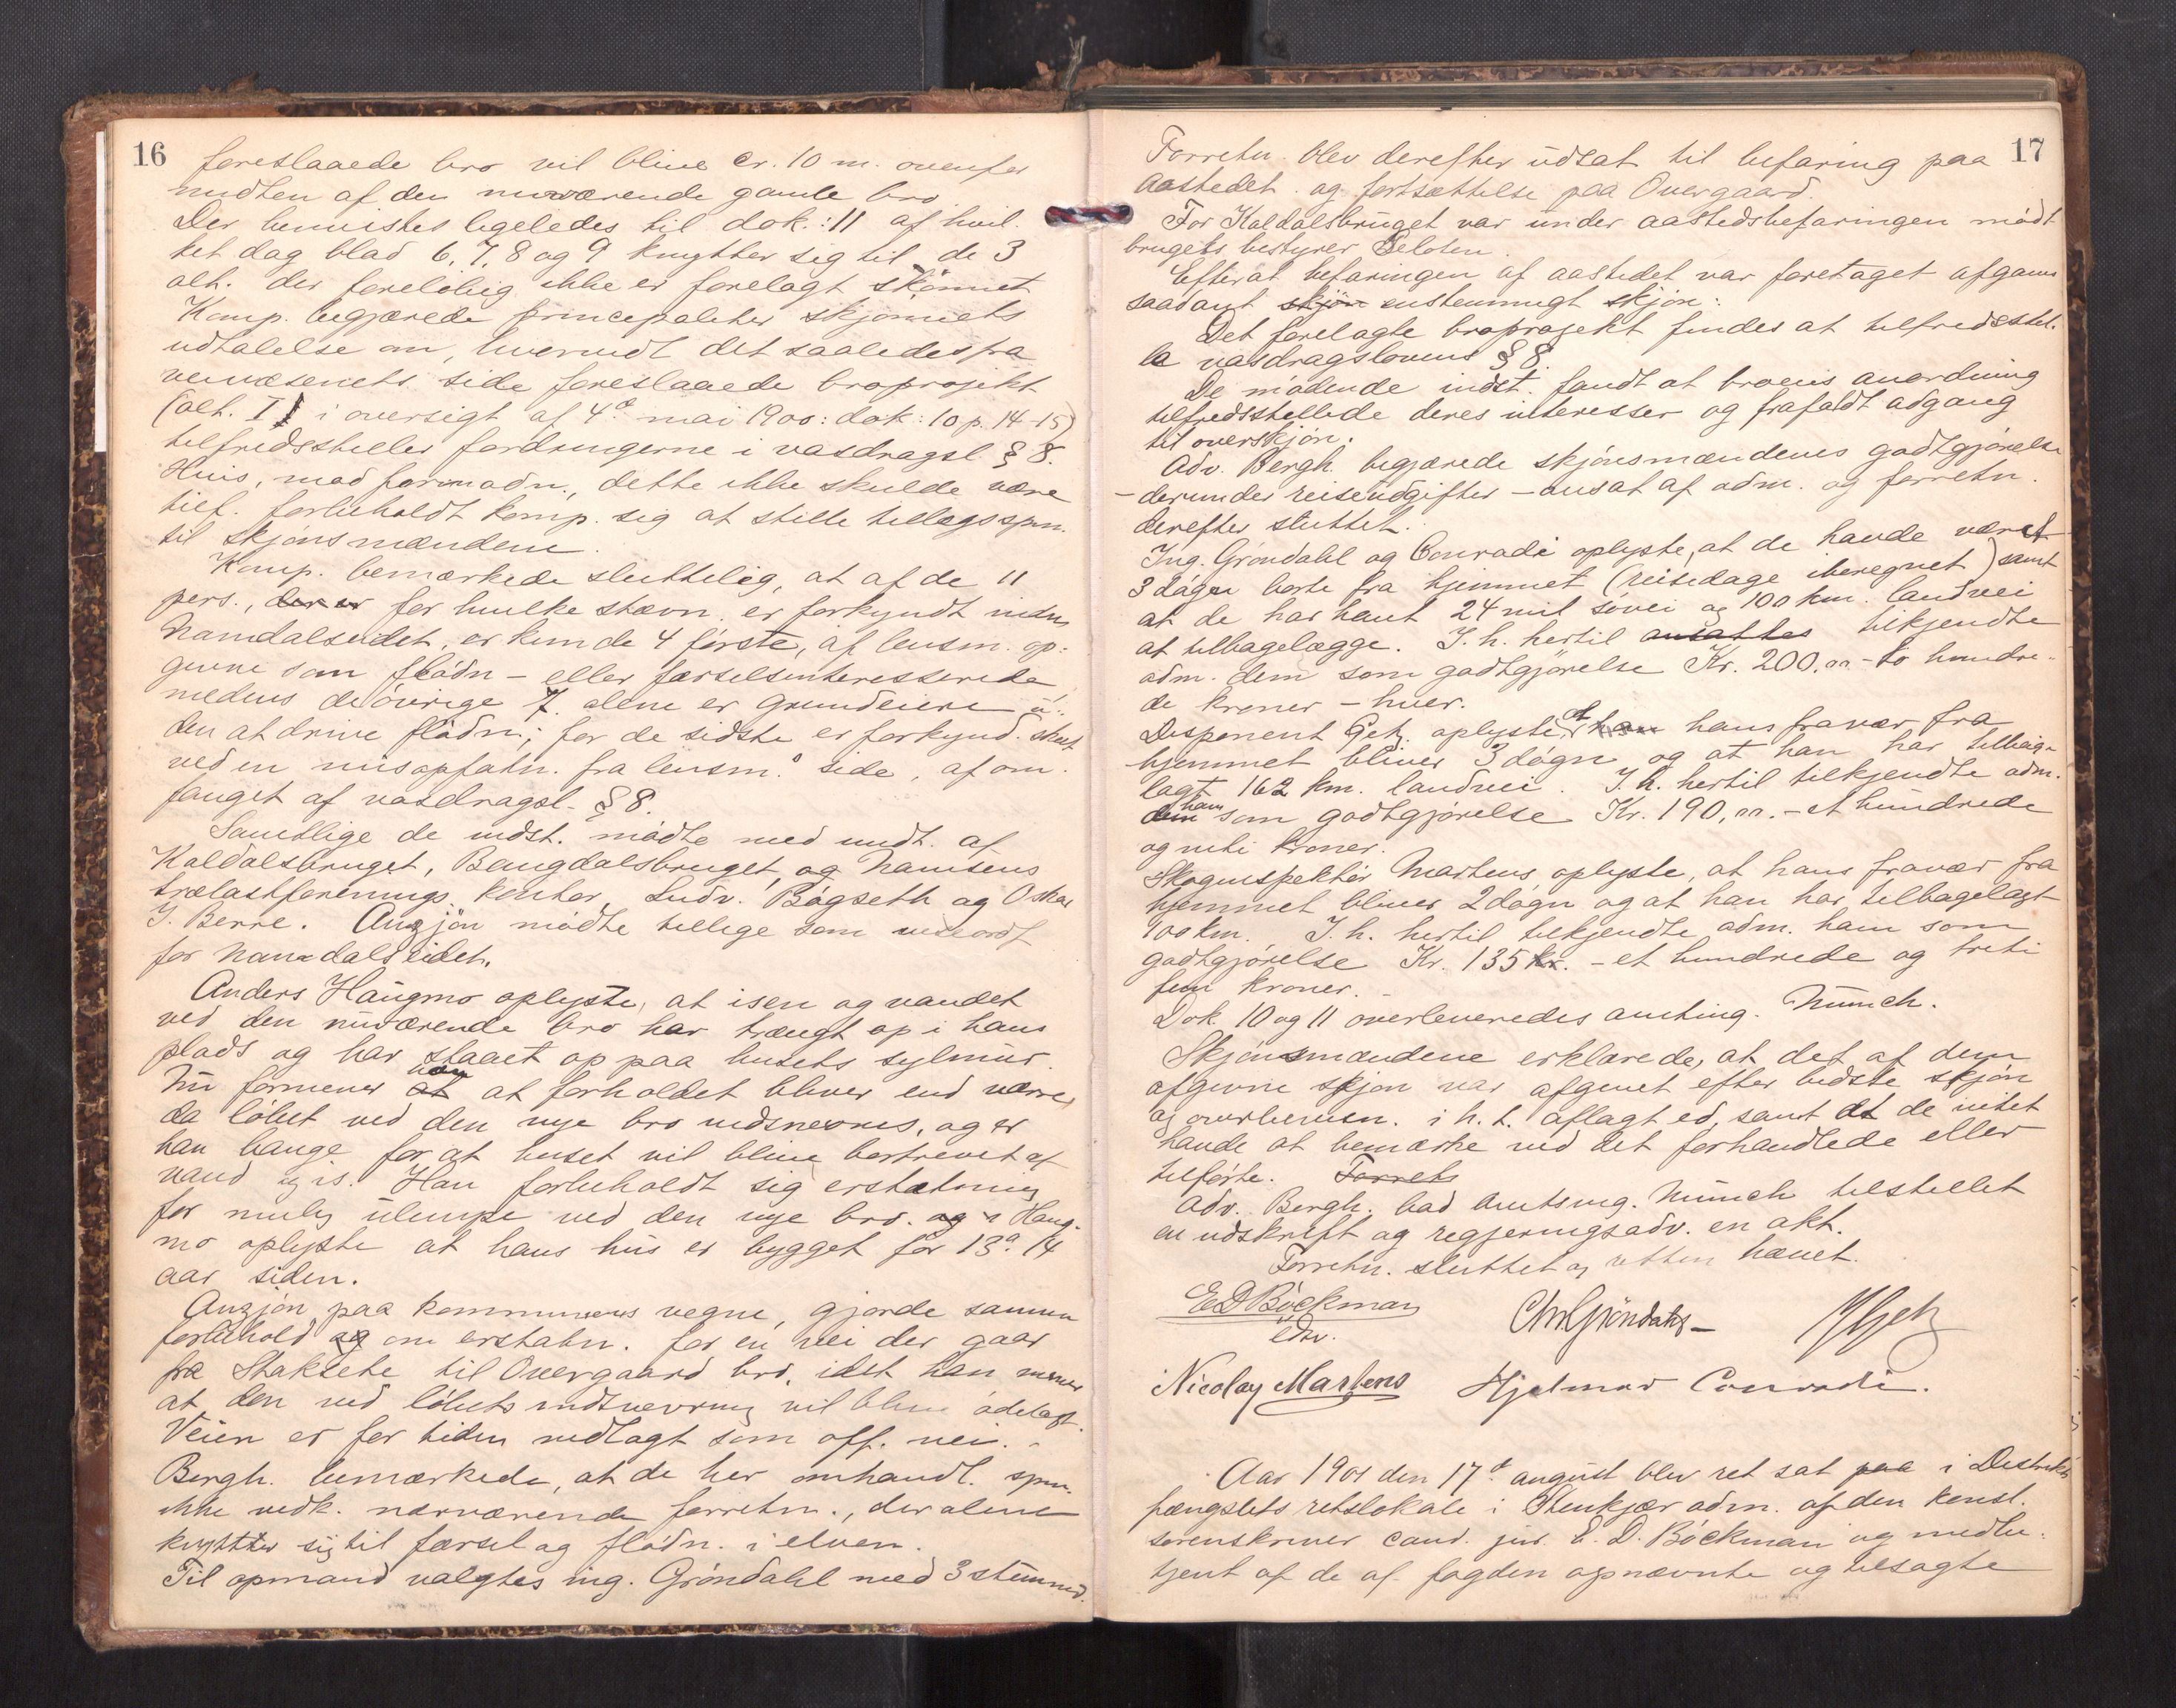 16
foreslaaede bro vil blive cr. 10 m. ovenfor
midten af den nuværende gamle bro.
Der henvistes ligeledes til dok.: 11 af hvil-
ket dog blad 6, 7, 8 og 9 knytter sig til de 3
alt. der foreløbig ikke er forelagt skønnet
Komp. begjærede principaliter skjønnets
udtalelse om, hvorvidt det saaledes fra
veivæsenets side foreslaaede broprojekt
(alt. I i oversigt af 4de mai 1900: dok: 10 p. 14-15)
tilfredsstiller fordringerne i vasdragsl § 8.
Hvis, mod formodn., dette ikke skulde være
tilf. forbeholdt komp. sig at stille tillægsspm.
til skjønsmændene.
Komp. bemærkede sluttelig, at af de 11
pers., der er for hvilke stævn. er forkyndt inden
Namdalseidet, er kun de 4 første, af lensm. op-
givne som flødn- eller færselsinteresserede
medens de øvrige 7 alene er grundeiere u-
den at drive flødn; for de sidste er forkynd. skeet
ved en misopfatn. fra lensm.s side, af om-
fanget af vasdragsl. § 8.
Samtlige de indst. mødte med undt. af
Kaldalsbruget, Bangdalsbruget, og Namsens
trælastforenings kontor, Ludv. Bøgseth og Oskar
J. Berre. Anzjøn mødte tillige som viseordf
for Namdalseidet.
Anders Haugmo oplyste, at isen og vandet
ved den nuværende bro har trængt op i hans
plads og har staaet op paa husets sylmur.
Nu formener han at at forholdet bliver end værre,
da løbet ved den nye bro indsnevres, og er
han bange for at huset vil blive bortrevet af
vand og is. Han forbeholdt sig erstatning
for mulig ulempe ved den nye bro. og Haug-
mo oplyste at hans hus er bygget for 13 a 14
aar siden.
Anzjøn, paa kommunens vegne, gjorde samme
forbehold og om erstatn. for en vei der gaar
fra Staksete til Overgaard bro, idet han mener
at den ved løbets indsnevring vil blive ødelagt.
Veien er for tiden nedlagt som off. vei. -
Bergh. bemærkede, at de her omhandl. spm.
ikke vedk. nærværende forretn., der alene
knytter sig til færsel og flødn. i elven.
Til opmand valgtes ing. Grøndahl med 3 stemmer.
17
Forretn. blev derefter udsat til befaring paa
aastedet og fortsættelse paa Overgaard.
For Kaldalsbruget var under aastedsbefaringen mødt
brugets bestyrer Seloten.
Efterat befaringen af aastedet var foretaget afgaves
saadant skjøn enstemmigt skjøn:
Det forelagte broprojekt findes at tilfredsstil-
le vasdragslovens § 8.
De mødende indst. fandt at broens anordning
tilfredsstillede deres interesser og frafaldt adgang
til overskjøn.
Adv. Bergh. begjærede skjønsmændenes godtgjørelse
- derunder reiseudgifter - ansat af adm. og forretn.
derefter sluttet.
Ing. Grøndahl og Conradi oplyste, at de havde været
3 døgn borte fra hjemmet (reisedage iberegnet) samt
at de har havt 24 mil søvei og 100 km. landvei
at tilbagelægge. I. h. hertil ansattes tilkjendte
adm. dem som godtgjørelse Kr. 200.00 - to hundre-
de kroner - hver.
Disponent Getz oplyste, at han hans fravær fra
hjemmet bliver 3 døgn og at han har tilbage-
lagt 162 km. landvei. I. h. hertil tilkjendte adm.
dem ham som godtgjørelse Kr. 190,00. - et hundrede
og niti kroner.
Skoginspektør Martens oplyste, at hans fravær fra
hjemmet bliver 2 døgn og at han har tilbagelagt
100 km. I. h. hertil tilkjendte adm. ham som
godtgjørelse Kr. 135 kr. - et hundrede og treti
fem kroner.
Dok. 10 og 11 overleveredes amting. Münch.
Skjønsmændene erklærede, at det af dem
afgivne skjøn var afgivet efter bedste skjøn
og overbevisn. i h. t. aflagt ed, samt at de intet
havde at bemærke ved det forhandlede eller
tilførte. Forretn
Adv. Bergh. bad amtsing. Münch tilstillet
en udskrift og regjeringsadv. en akt.
Forretn. sluttet og retten hævet.
E D Böckman
edv.
Chr Grøndahl
Getz
Nicolay Martens Hjalmar Conradi.
Aar 1901 den 17de august blev ret sat paa i Distrikts
fængslets retslokale i Stenkjær adm. af den konst.
sorenskriver cand. jur. E. D. Böckman og medbe-
tjent af de af fogden opnævnte og tilsagte